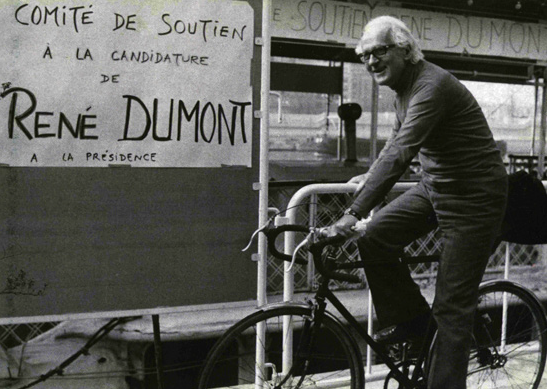 COMITÉ DE SOUTIEN
À LA CANDIDATURE
DE
RENÉ DUMONT
A LA PRÉSIDENCE
E SOUTIEN RENÉ DUMON